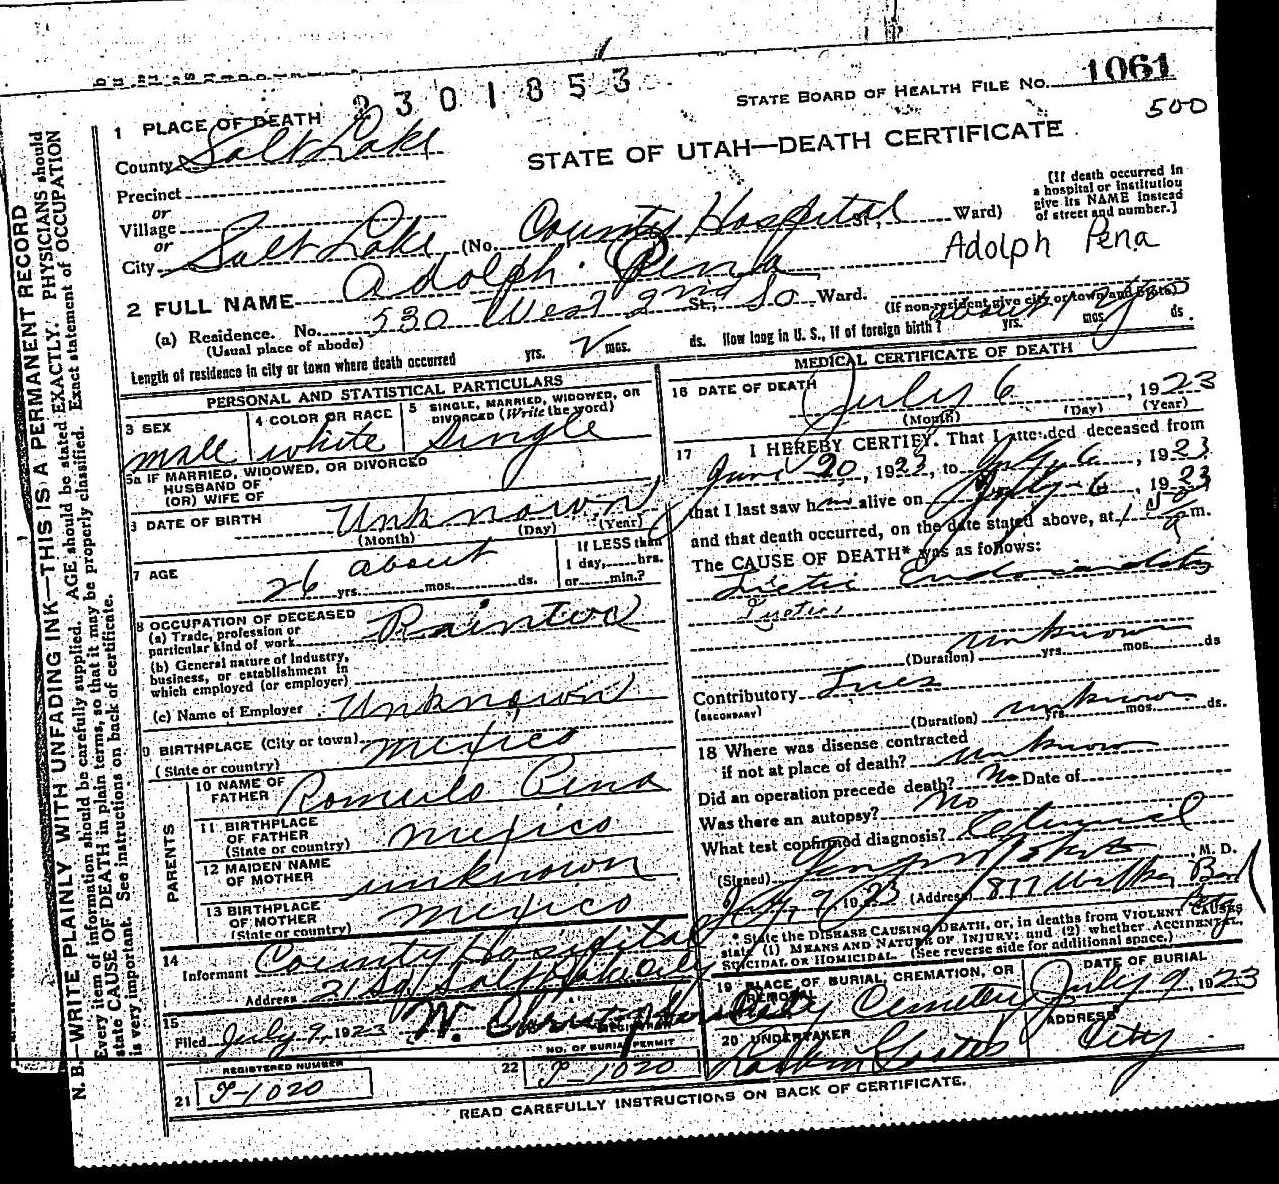 2301853
STATE BOARD OF HEALTH FILE No. 1061
500
STATE OF UTAH—DEATH CERTIFICATE
1 PLACE OF DEATH
County Salt Lake
Precinct
or
Village
or
City Salt Lake (No. County Hospital St., Ward)
(If death occurred in
a hospital or institution
give its NAME instead
of street and number.]
Adolph Pena
2 FULL NAME Adolph Pena
(a) Residence. No. 530 West 2nd So St., Ward.
(Usual place of abode)
(If non-resident give city or town and State)
Length of residence in city or town where death occurred yrs. mos. ds. How long in U. S., if of foreign birth? about yrs. mos. ds.
PERSONAL AND STATISTICAL PARTICULARS
3 SEX
male
4 COLOR OR RACE
white
5 SINGLE, MARRIED, WIDOWED, OR
DIVORCED (Write the word)
single
5a IF MARRIED, WIDOWED, OR DIVORCED
HUSBAND OF
(OR) WIFE OF
6 DATE OF BIRTH Unknown
(Month) (Day) (Year)
7 AGE
26 about yrs. mos. ds.
If LESS than
1 day, hrs.
or min.?
8 OCCUPATION OF DECEASED
(a) Trade, profession or
particular kind of work Painter
(b) General nature of Industry,
business, or establishment in
which employed (or employer)
(c) Name of Employer Unknown
9 BIRTHPLACE (City or town)
(State or country) Mexico
PARENTS
10 NAME OF
FATHER Romulo Pena
11 BIRTHPLACE
OF FATHER
(State or country) Mexico
12 MAIDEN NAME
OF MOTHER unknown
13 BIRTHPLACE
OF MOTHER
(State or country) Mexico
14
Informant County Hospital
Address 21 So Salt Lake City
15
Filed July 9, 1923 W. Christopherson
REGISTRAR
REGISTERED NUMBER
21 T-1020
NO. OF BURIAL PERMIT
22 T-1020
MEDICAL CERTIFICATE OF DEATH
16 DATE OF DEATH
July 6, 1923
(Month) (Day) (Year)
17 I HEREBY CERTIFY. That I attended deceased from
June 20, 1923, to July 6, 1923
that I last saw him alive on July 6, 1923
and that death occurred, on the date stated above, at 1 a m.
The CAUSE OF DEATH* was as follows:
Luetic Endocarditis
(Duration) unknown yrs. mos. ds
Contributory Lues
(SECONDARY)
(Duration) unknown yrs. mos. ds.
18 Where was disease contracted
if not at place of death? unknown
Did an operation precede death? No Date of
Was there an autopsy? No
What test confirmed diagnosis? Clinical
(Signed) M. D.
July 9, 1923 (Address) 817 Walker Bank Bldg
* State the DISEASE CAUSING DEATH, or, in deaths from VIOLENT CAUSES
state (1) MEANS AND NATURE OF INJURY; and (2) whether ACCIDENTAL,
SUICIDAL OR HOMICIDAL. (See reverse side for additional space.)
19 PLACE OF BURIAL, CREMATION, OR
REMOVAL
City Cemetery
DATE OF BURIAL
July 9, 1923
20 UNDERTAKER
ADDRESS
City
READ CAREFULLY INSTRUCTIONS ON BACK OF CERTIFICATE.
N. B.—WRITE PLAINLY WITH UNFADING INK—THIS IS A PERMANENT RECORD
Every item of information should be carefully supplied. AGE should be stated EXACTLY. PHYSICIANS should
state CAUSE OF DEATH in plain terms, so that it may be properly classified. Exact statement of OCCUPATION
is very important. See instructions on back of certificate.